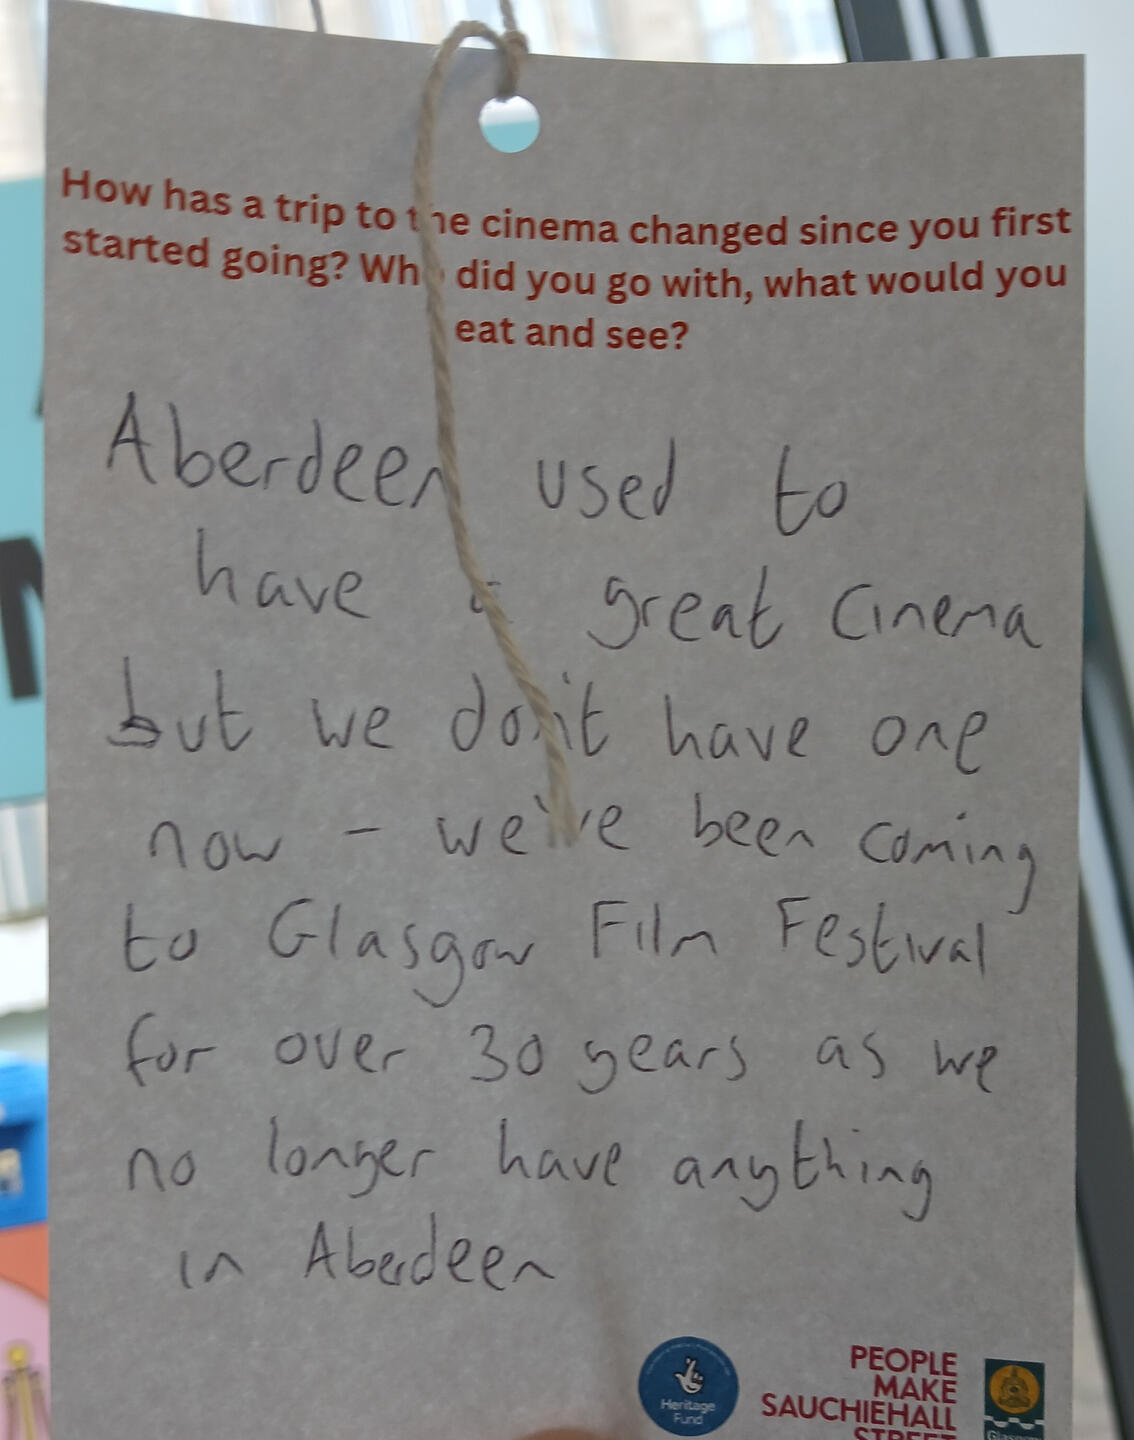 How has a trip to the cinema changed since you first
started going? Who did you go with, what would you
eat and see?
Aberdeen used to
have a great cinema
but we don't have one
now - we've been coming
to Glasgow Film Festival
for over 30 years as we
no longer have anything
in Aberdeen
Heritage
Fund
PEOPLE
MAKE
SAUCHIEHALL
STREET
Glasgow